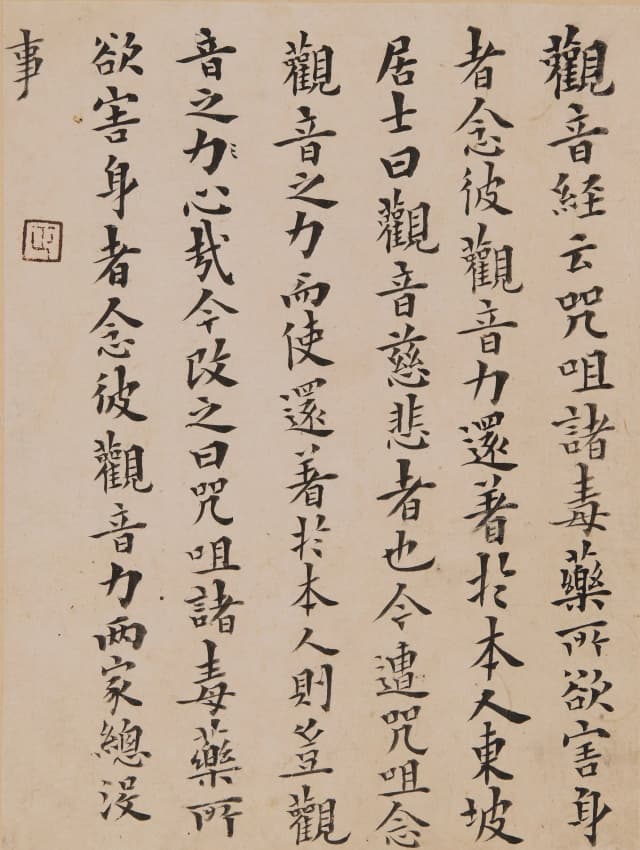 觀音経云咒咀諸毒藥所欲害身
者念彼觀音力還著於本人東坡
居士曰觀音慈悲者也今遭咒咀念
觀音之力而使還著於本人則豈觀
音之力心哉今改之曰咒咀諸毒藥所
欲害身者念彼觀音力兩家總沒
事